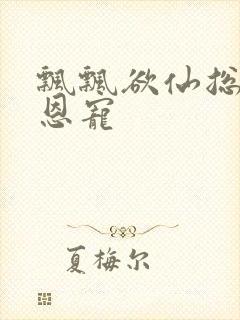 飘飘欲仙总
恩宠
夏梅尔